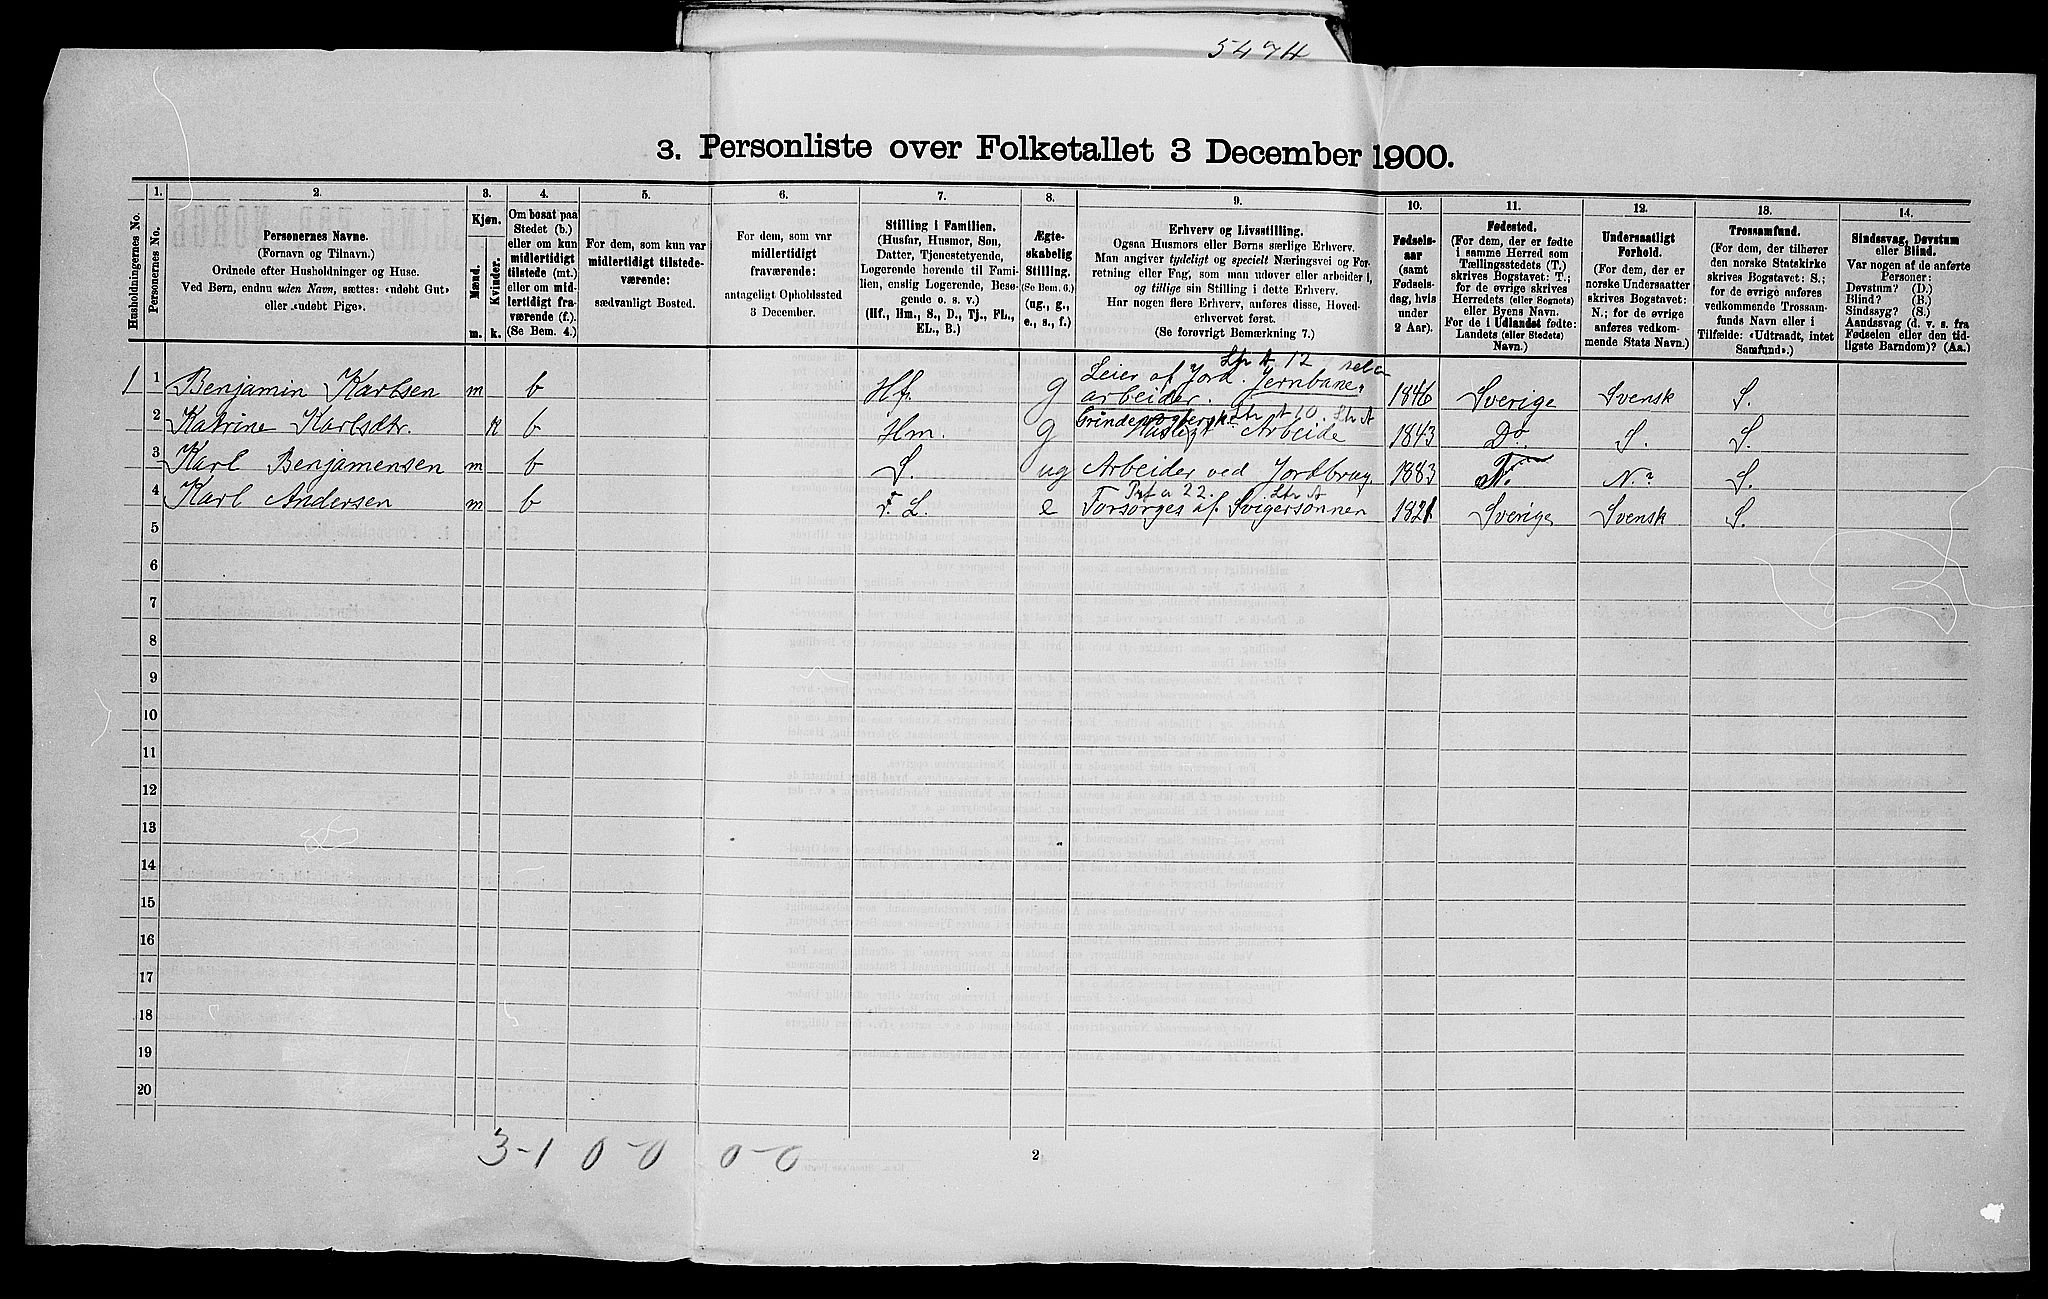 5474
3. Personliste over Folketallet 3 December 1900.
Husholdningernes No.
1.
Personernes No.
2.
Personernes Navne.
(Fornavn og Tilnavn.)
Ordnede efter Husholdninger og Huse.
Ved Børn, endnu uden Navn, sættes: «udøbt Gut»
eller «udøbt Pige».
3.
Kjøn.
Mænd.
Kvinder.
m. k.
4.
Om bosat paa
Stedet (b.)
eller om kun
midlertidigt
tilstede (mt.)
eller om mid-
lertidigt fra-
værende (f.).
(Se Bem. 4.)
5.
For dem, som kun var
midlertidigt tilstede-
værende:
sædvanligt Bosted.
6.
For dem, som var
midlertidigt
fraværende:
antageligt Opholdssted
3 December.
7.
Stilling i Familien.
(Husfar, Husmor, Søn,
Datter, Tjenestetyende,
Logerende hørende til Fami-
lien, enslig Logerende, Besø-
gende o. s. v.)
(Hf., Hm., S., D., Tj., FL.,
EL., B.)
8.
Ægte-
skabelig
Stilling.
(Se Bem. 6.)
(ug., g.,
e., s., f.)
9.
Erhverv og Livsstilling.
Ogsaa Husmors eller Børns særlige Erhverv.
Man angiver tydeligt og specielt Næringsvei og For-
retning eller Fag, som man udøver eller arbeider i,
og tillige sin Stilling i dette Erhverv.
Har nogen flere Erhverv, anføres disse, Hoved-
erhvervet først.
(Se forøvrigt Bemærkning 7.)
10.
Fødsels-
aar
(samt
Fødsels-
dag, hvis
under
2 Aar).
11.
Fødested.
(For dem, der er fødte
i samme Herred som
Tællingsstedets (T.)
skrives Bogstavet: T.;
for de øvrige skrives
Herredets (eller Sognets)
eller Byens Navn.
For de i Udlandet fødte:
Landets (eller Stedets)
Navn.)
12.
Undersaatligt
Forhold.
(For dem, der er
norske Undersaatter
skrives Bogstavet:
N.; for de øvrige
anføres vedkom-
mende Stats Navn.)
13.
Trossamfund.
(For dem, der tilhører
den norske Statskirke
skrives Bogstavet: S.;
for de øvrige anføres
vedkommende Trossam-
funds Navn eller i
Tilfælde: «Udtraadt, intet
Samfund».)
14.
Sindssvag, Døvstum
eller Blind.
Var nogen af de anførte
Personer:
Døvstum? (D.)
Blind? (B.)
Sindssyg? (S.)
Aandssvag (d. v. s. fra
Fødselen eller den tid-
ligste Barndom)? (Aa.)
Ltr A 12
1 1 Benjamin Karlsen m b Hf. g Leier af Jord. Jernbane,
arbeider. 1846 Sverige Svensk S.
Ltr A 10. Ltr A
2 Katrine Karlsdtr. k b Hm. g Husligt Arbeide 1843 Do. S. S.
3 Karl Benjamensen m b S. ug Arbeider ved Jordbrug. 1883 T. N. S.
22. Ltr A
4 Karl Andersen m b F. L. e Forsørges af Svigersønnen 1821 Sverige Svensk S.
5
6
7
8
9
10
11
12
13
14
15
16
17
18
19
20
3-1 0-0 0-0
2